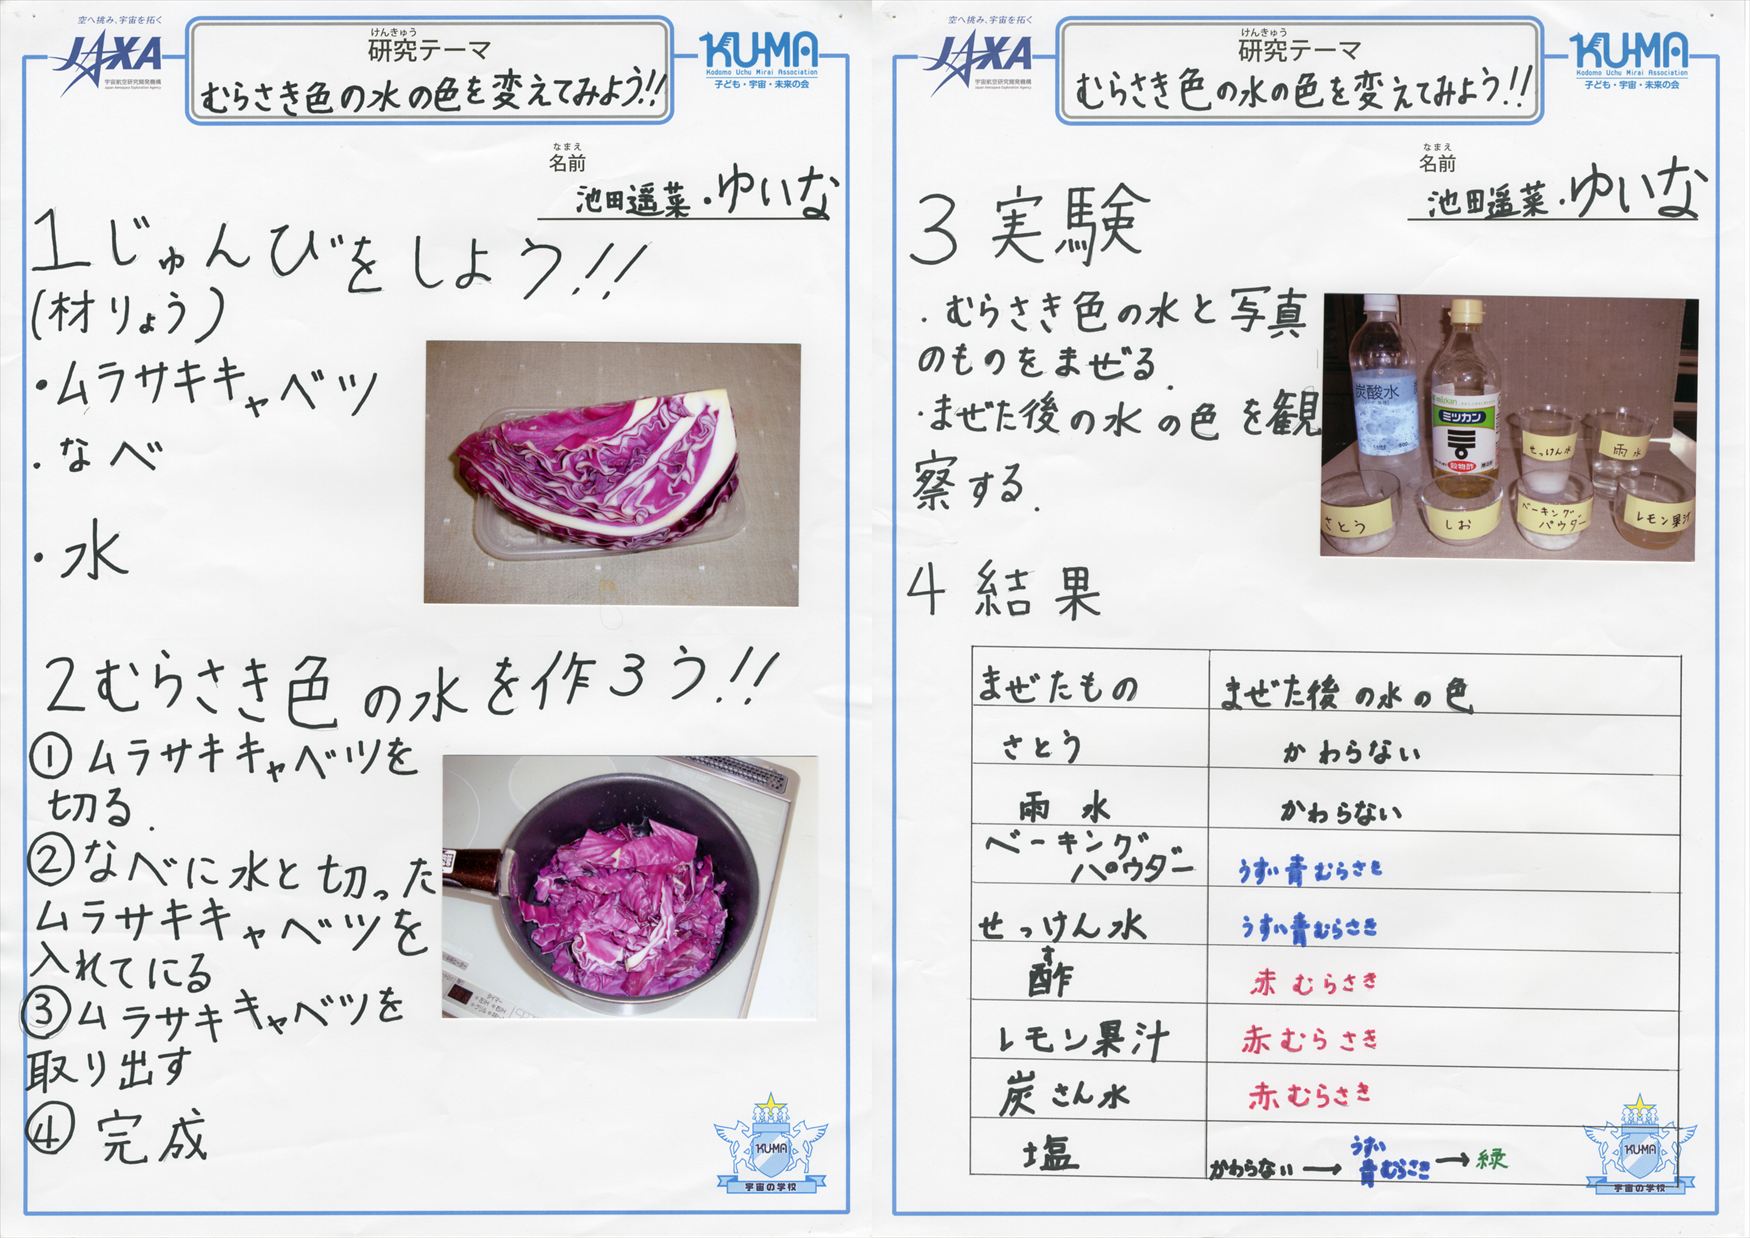 空へ挑み、宇宙を拓く
JAXA
宇宙航空研究開発機構
Japan Aerospace Exploration Agency
けんきゅう
研究テーマ
むらさき色の水の色を変えてみよう!!
KU-MA
Kodomo Uchu Mirai Association
子ども・宇宙・未来の会
なまえ
名前
池田遥菜・ゆいな
1じゅんびをしよう!!
(材りょう)
・ムラサキキャベツ
・なべ
・水
2むらさき色の水を作ろう!!
①ムラサキキャベツを
切る.
②なべに水と切った
ムラサキキャベツを
入れてにる
③ムラサキキャベツを
取り出す
④完成
KU-MA
宇宙の学校
空へ挑み、宇宙を拓く
JAXA
宇宙航空研究開発機構
Japan Aerospace Exploration Agency
けんきゅう
研究テーマ
むらさき色の水の色を変えてみよう!!
KU-MA
Kodomo Uchu Mirai Association
子ども・宇宙・未来の会
なまえ
名前
池田遥菜・ゆいな
3実験
・むらさき色の水と写真
のものをまぜる.
・まぜた後の水の色を観
察する.
炭酸水
mizkan
ミツカン
穀物酢
せっけん水
雨水
さとう
しお
ベーキング
パウダー
レモン果汁
4結果
まぜたもの まぜた後の水の色
さとう かわらない
雨水 かわらない
ベーキング
パウダー うすい青むらさき
せっけん水 うすい青むらさき
す
酢 赤むらさき
レモン果汁 赤むらさき
炭さん水 赤むらさき
塩 かわらない→うすい青むらさき→緑
KU-MA
宇宙の学校